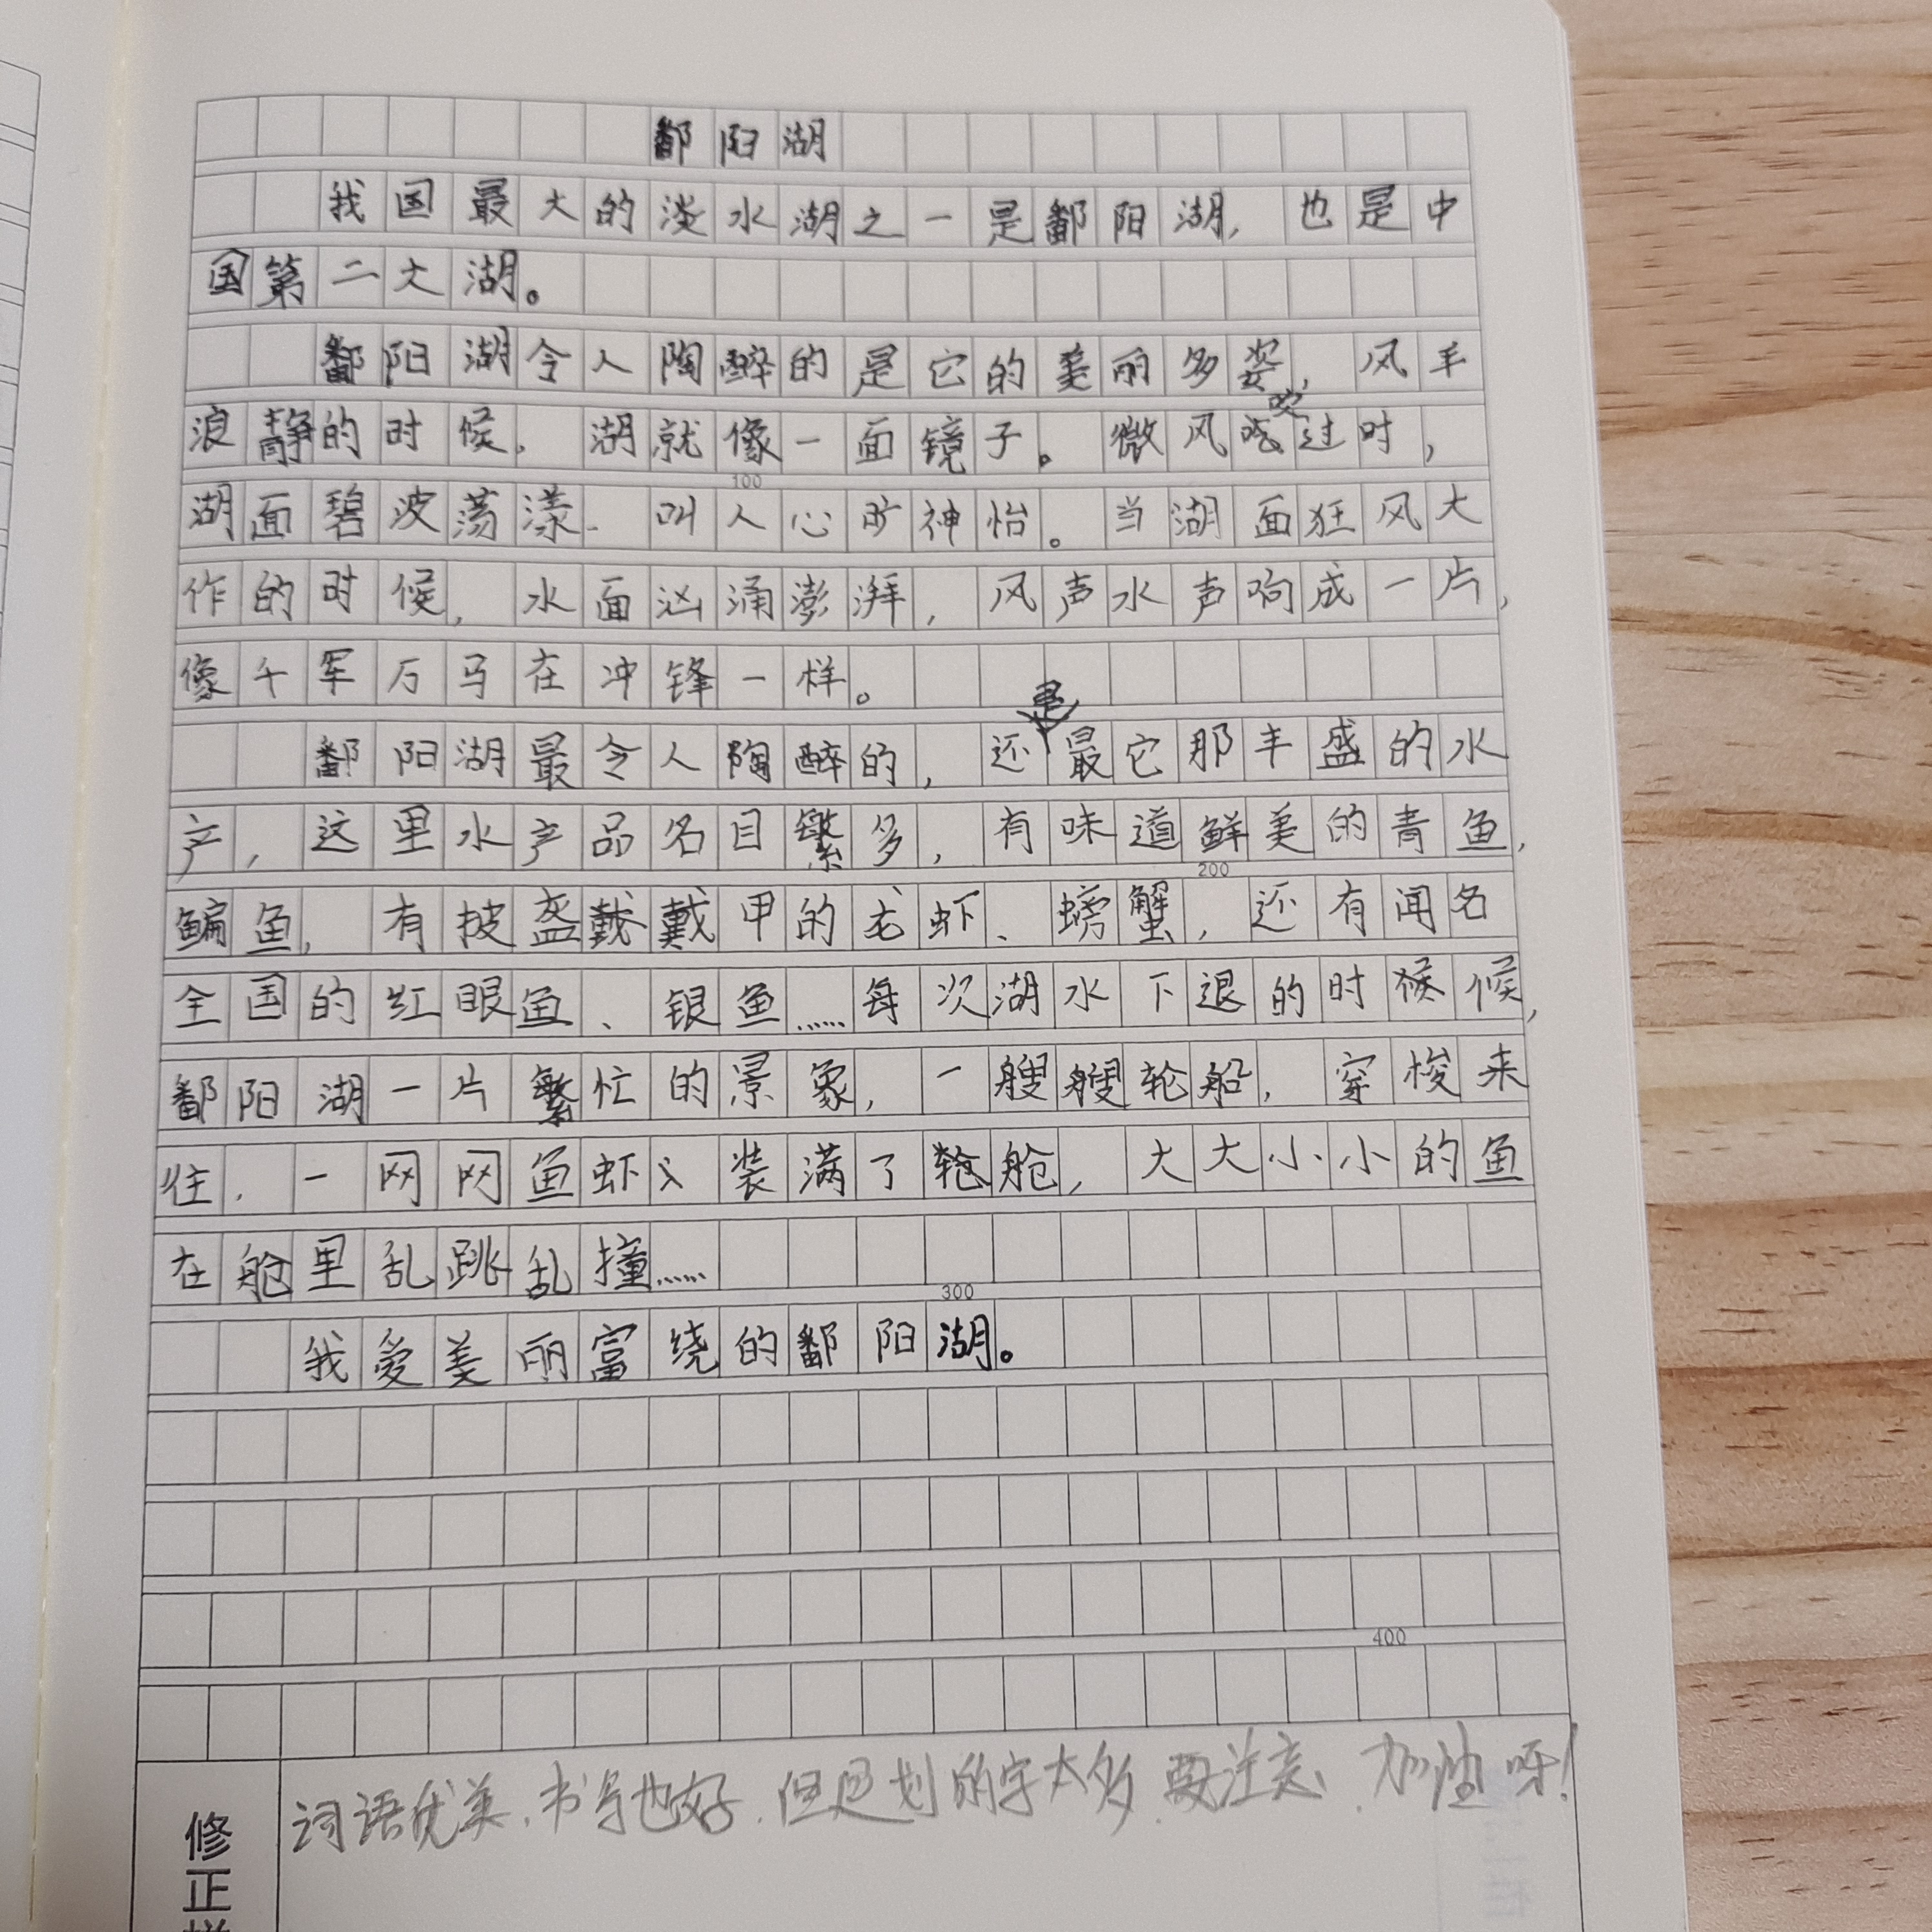 鄱阳湖
我国最大的淡水湖之一是鄱阳湖,也是中
国第二大湖。
鄱阳湖令人陶醉的是它的美丽多姿,风丰
浪静的时候,湖就像一面镜子。微风吹过时,
100
湖面碧波荡漾、叫人心旷神怡。当湖面狂风大
作的时候,水面汹涌澎湃,风声水声响成一片,
像千军万马在冲锋一样。
鄱阳湖最令人陶醉的,还是它那丰盛的水
产,这里水产品名目繁多,有味道鲜美的青鱼,
200
鳊鱼,有披盔戴甲的毛虾、螃蟹,还有闻名
全国的红眼鱼、银鱼……每次湖水下退的时候,
鄱阳湖一片繁忙的景象,一艘艘轮船,穿梭来
往,一网网鱼虾装满了舱,大大小小的鱼
在舱里乱跳乱撞……
300
我爱美丽富绕的鄱阳湖。
400
词语优美,书写也好,但是划的字太多,要注意、加油呀!
修正